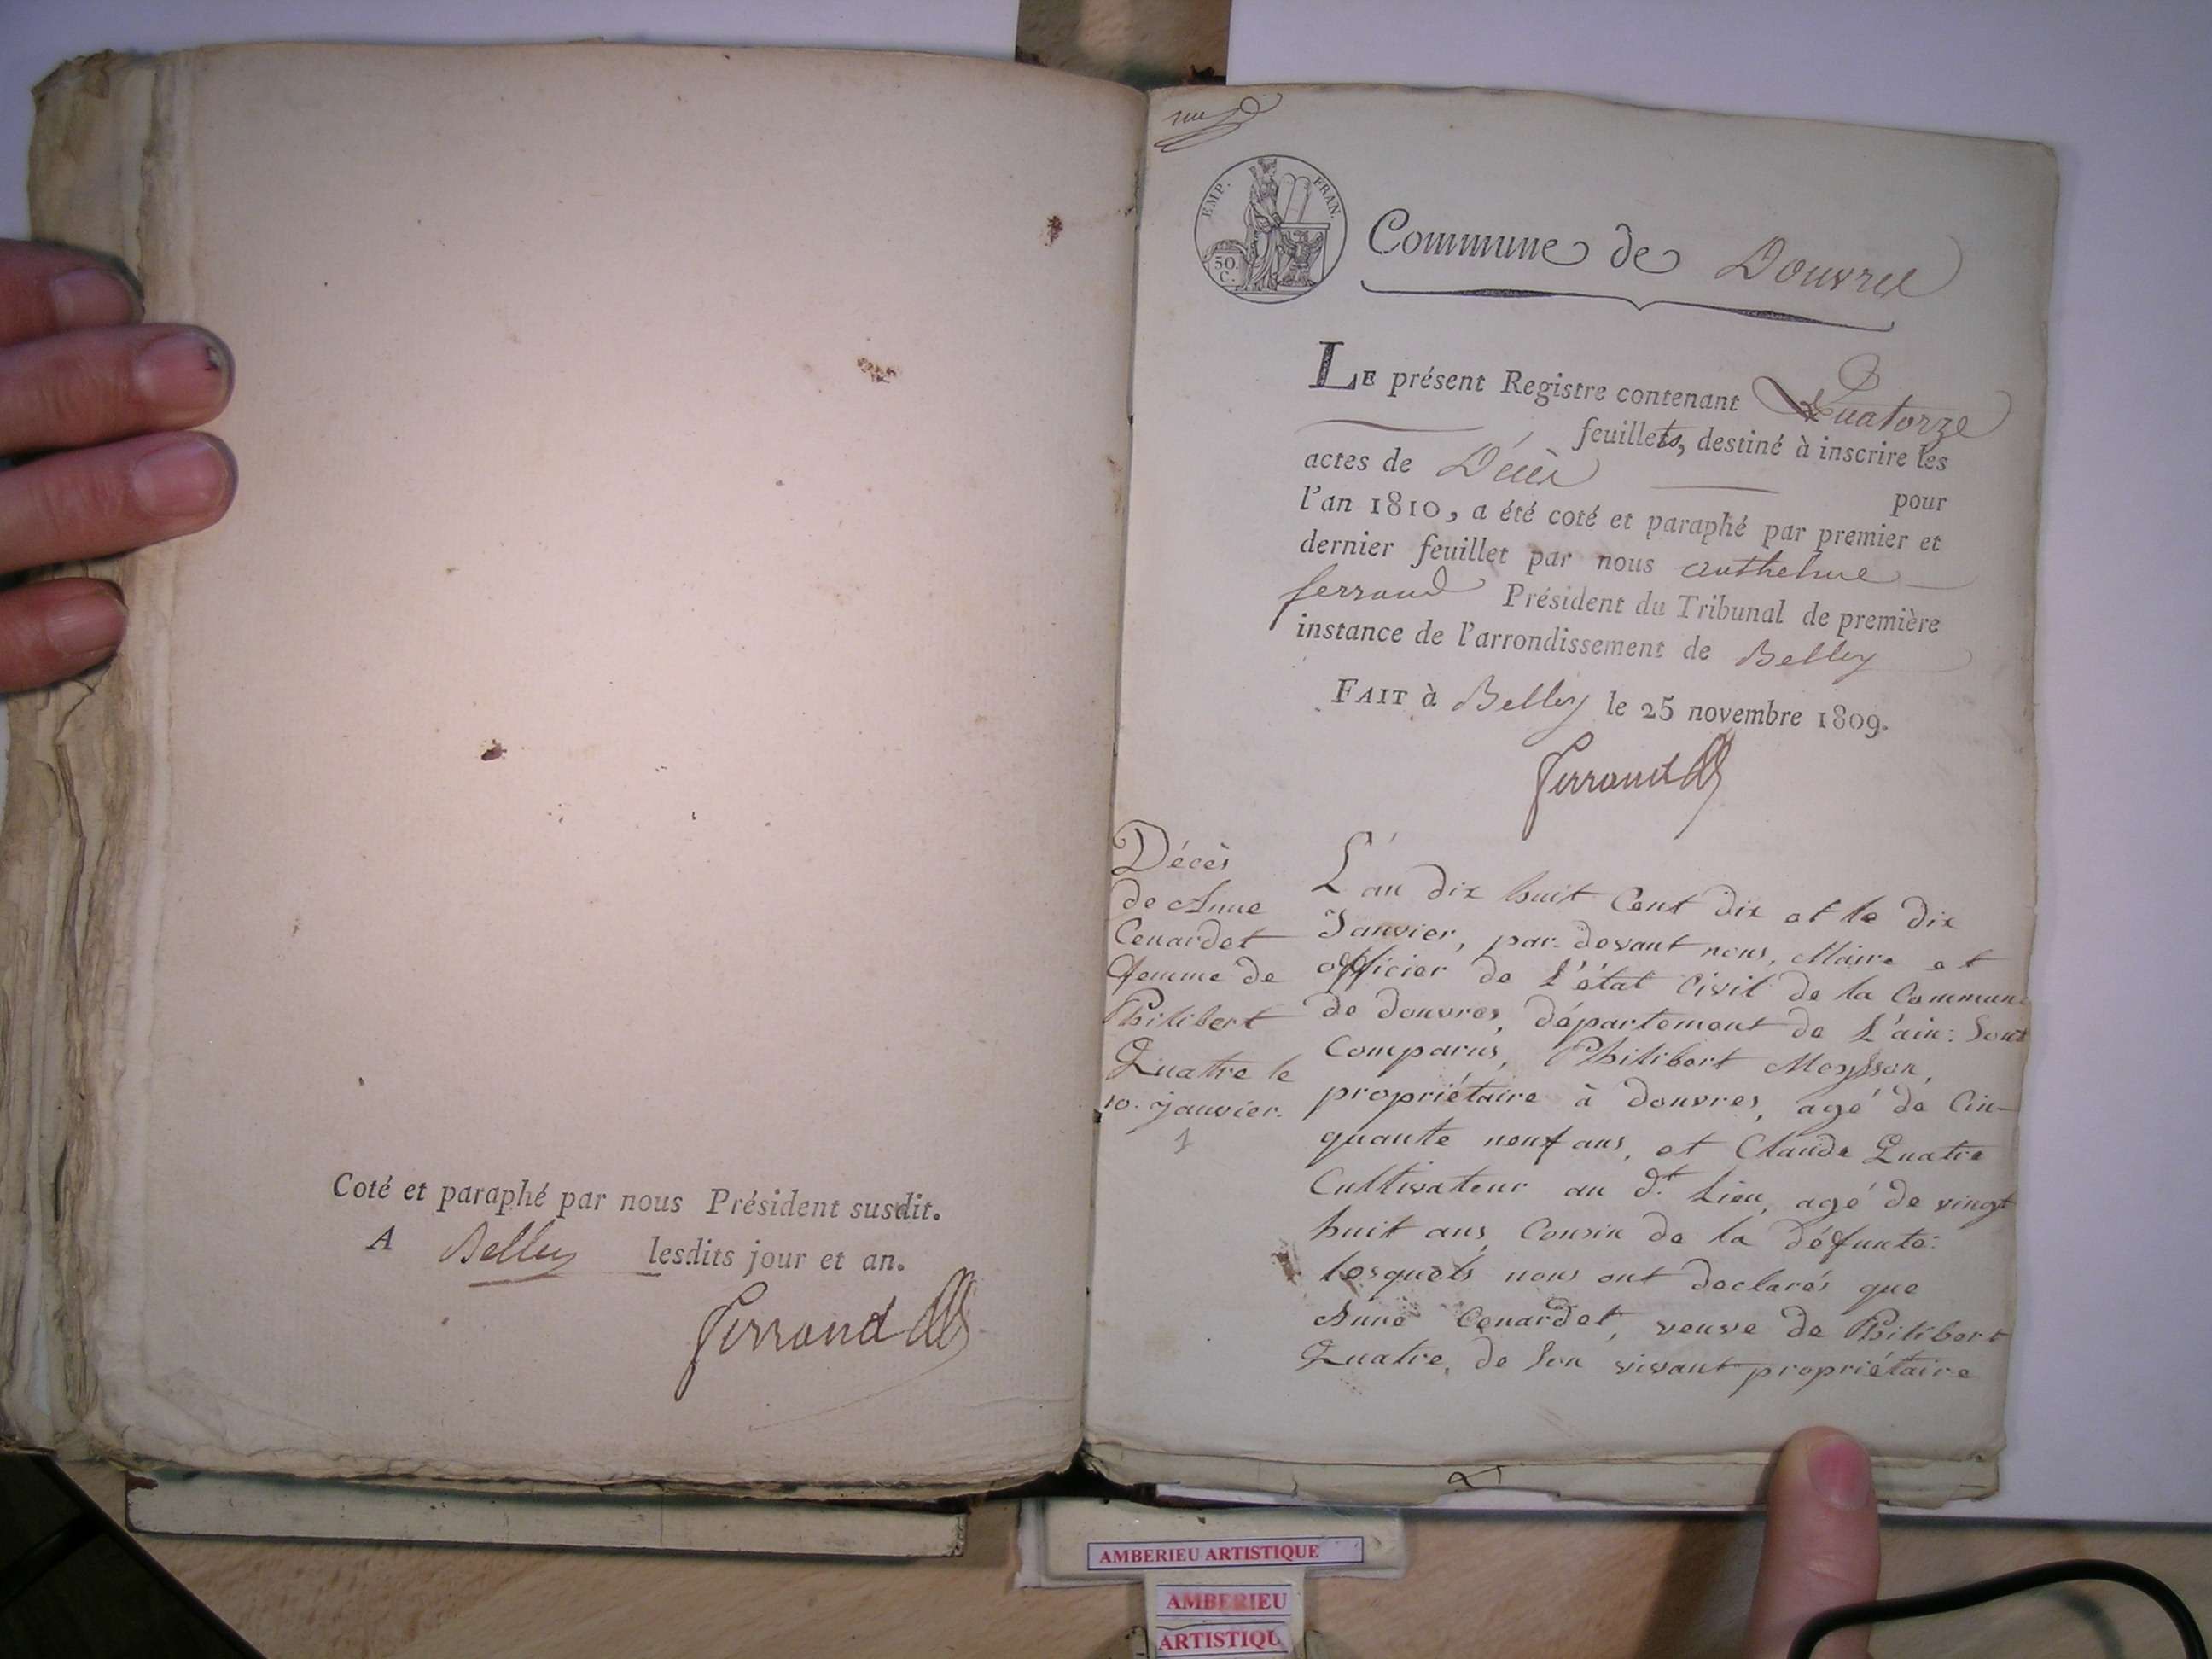 Coté et paraphé par nous Président susdit.
A Belley lesdits jour et an.
Ferrand
EMP. FRAN.
50.
C.
Commune de Douvres
LE présent Registre contenant Quatorze
feuillets, destiné à inscrire les
actes de Décès pour
l'an 1810, a été coté et paraphé par premier et
dernier feuillet par nous anthelme
ferrand Président du Tribunal de première
instance de l'arrondissement de Belley
FAIT à Belley le 25 novembre 1809.
Ferrand
Décès
de Anne
Cenardet
femme de
Philibert
Quatre le
10. Janvier.
1
L'an dix huit Cent dix et le dix
Janvier, par-devant nous, Maire et
officier de L'état Civil de la Commune
de douvres, département de L'ain: Sont
Comparus, Philibert Moysson,
propriétaire à douvres, agé de Cin-
quante neuf ans, et Claude Quatre
Cultivateur au dt. Lieu, agé de vingt
huit ans, Cousin de la défunte:
lesquels nous ont declarés que
Anne Cenardet, veuve de Philibert
Quatre, de Son vivant propriétaire
AMBERIEU ARTISTIQUE
AMBERIEU
ARTISTIQU